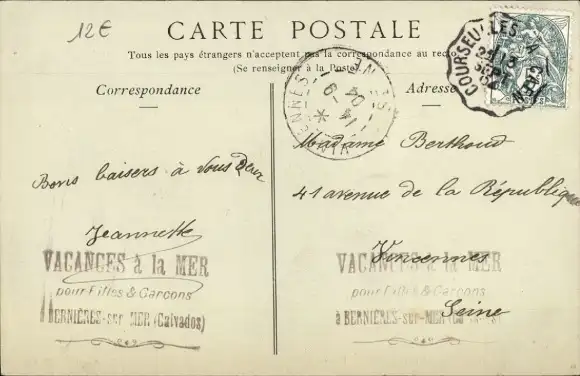 12€
CARTE POSTALE
Tous les pays étrangers n'acceptent pas la correspondance au
(Se renseigner à la Poste)
Correspondance
Adresse
COURSEULLES A CAEN
SEPT
VINCENNES
SEINE
Madame Berthoud
Bons baisers à vous deux
41 avenue de la République
Jeannette
Vincennes
Seine
VACANCES à la MER
pour Filles & Garçons
à BERNIÈRES-sur MER (Calvados)
VACANCES à la MER
pour Filles & Garçons
à BERNIÈRES-sur-MER